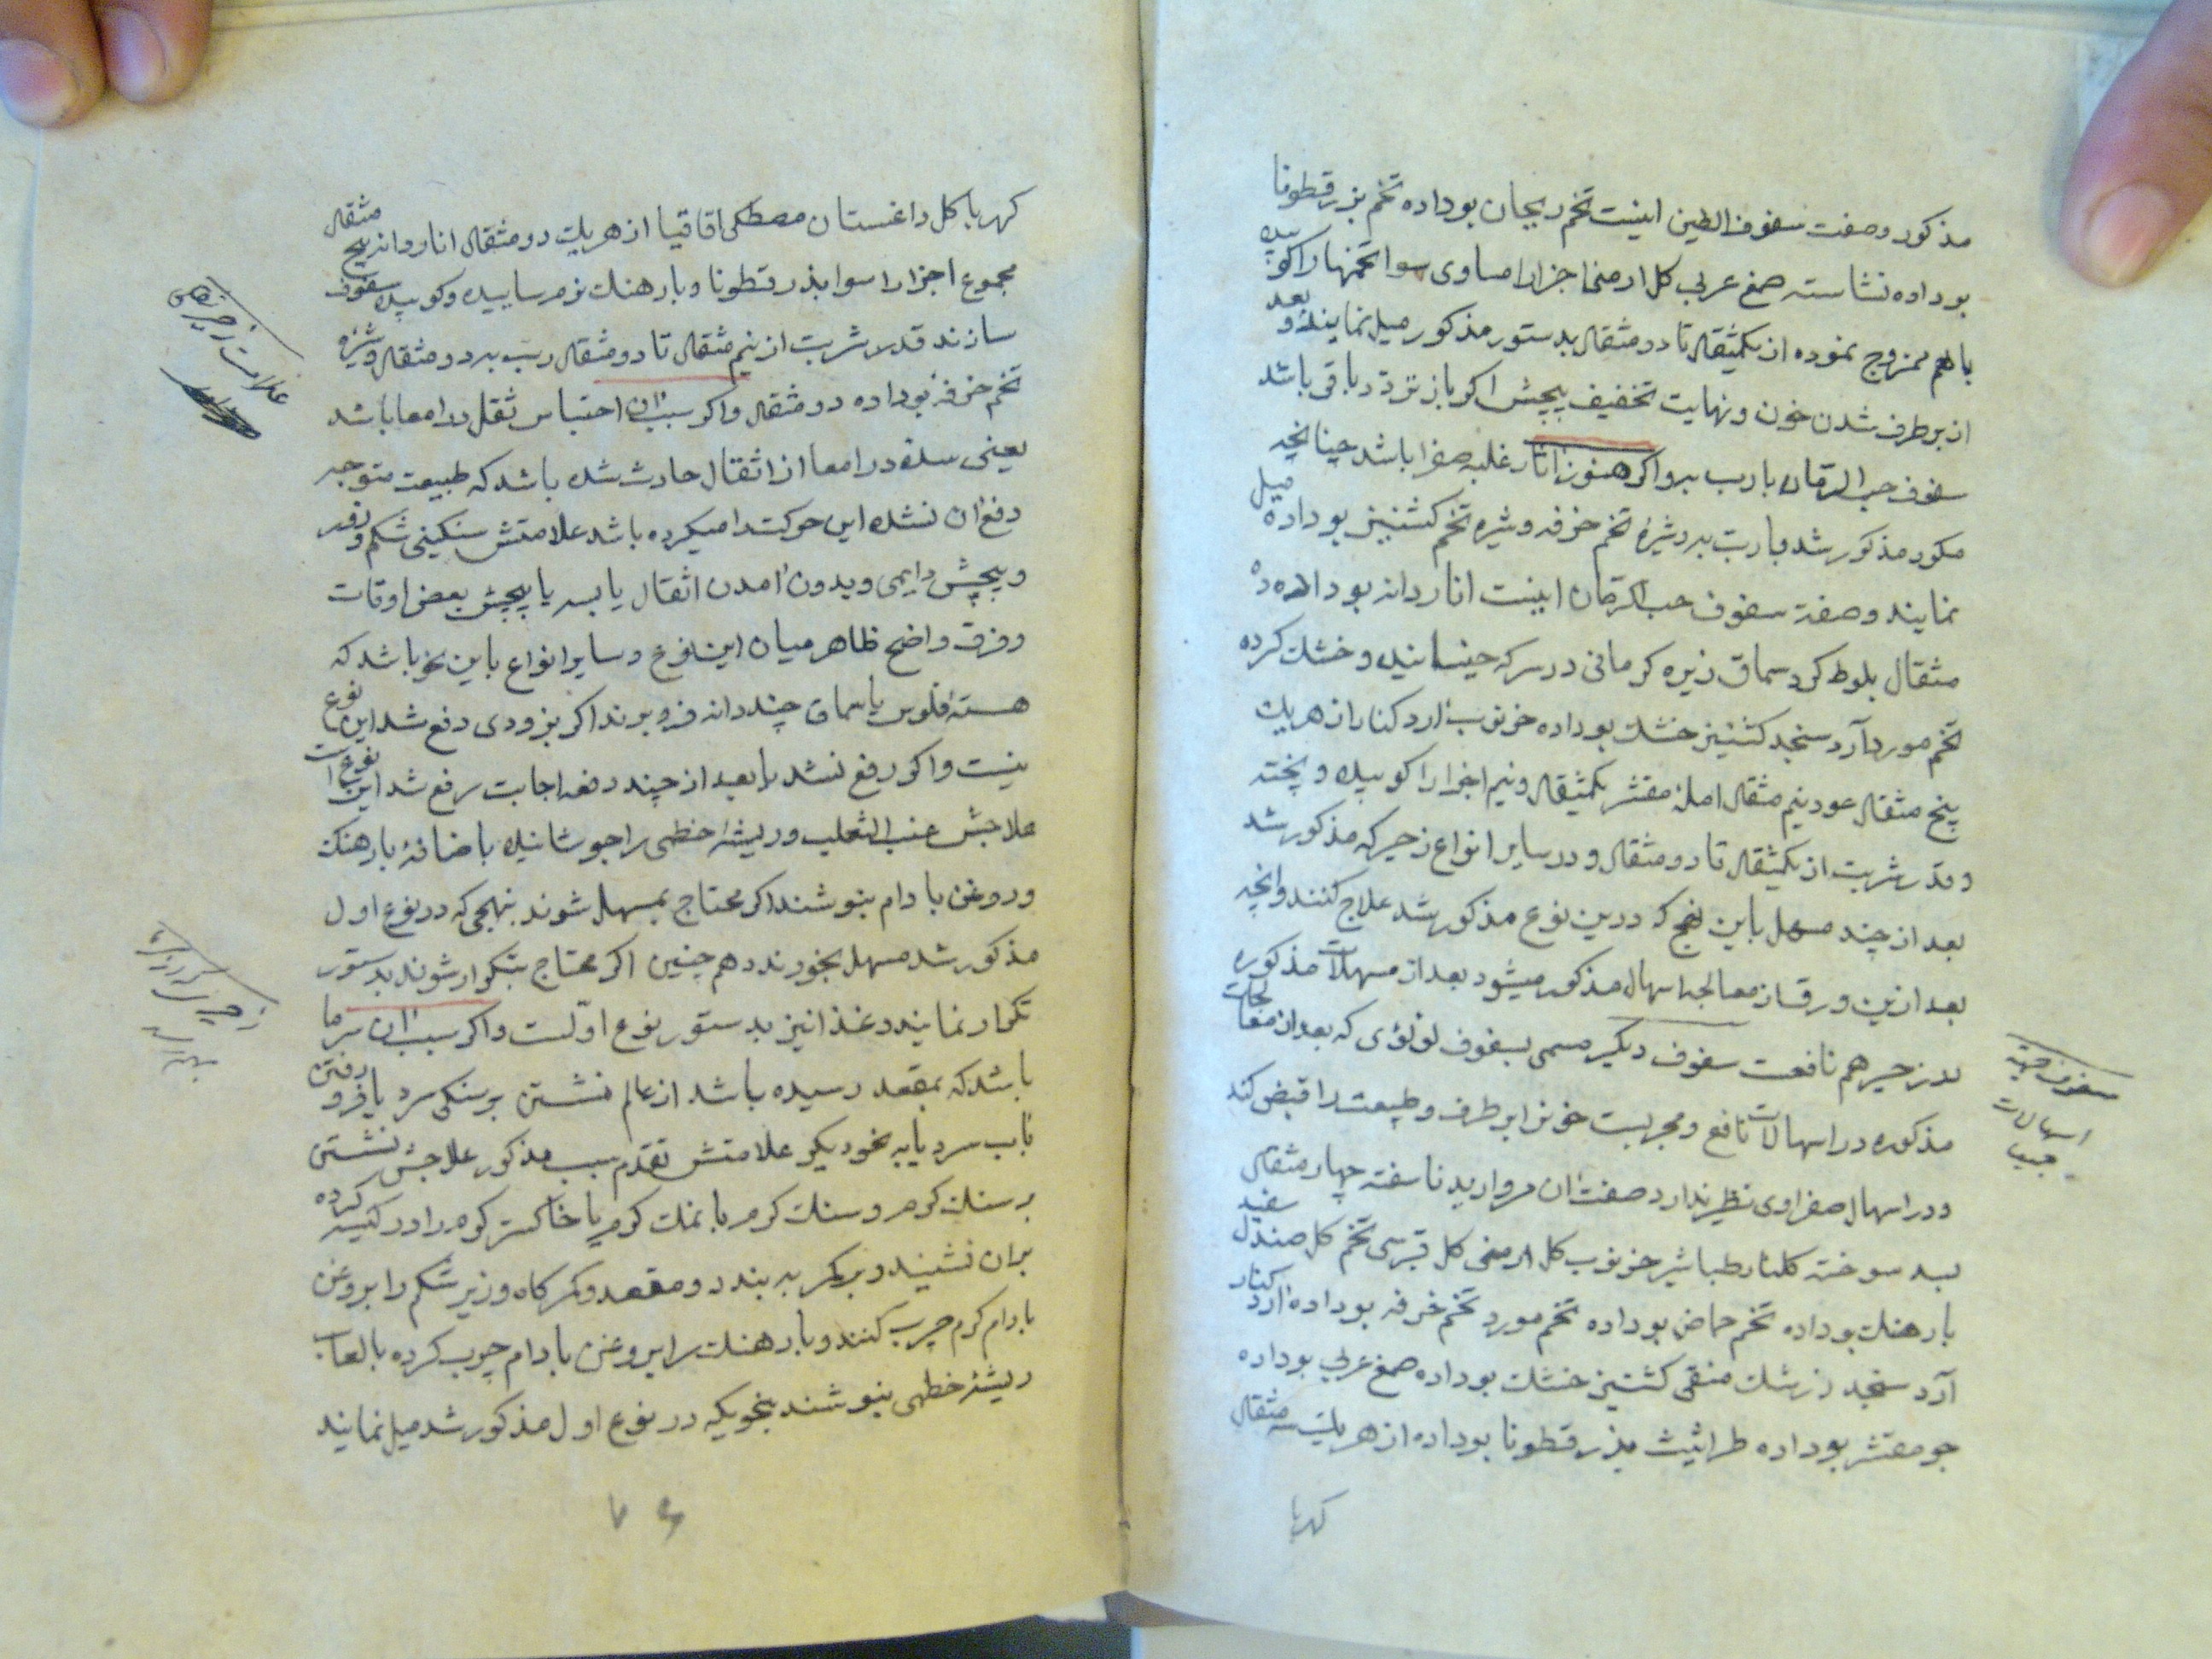 مذکور وصفت سفوف الطین اینست تخم ریحان بوداده تخم بزرقطونا
بوداده نشاسته صمغ عربی کل ارمنی اجزا را مساوی سوا تخمها را کوبیده
باهم ممزوج نموده از یکمثقال تا دو مثقال بدستور مذکور میل نمایند و بعد
از برطرف شدن خون و نهایت تخفیف پیچش اکر باز تردد باقی باشد
سفوف حب الرمان بارب به و اکر هنوز اثار غلبه صفرا باشد چنانچه
مکرر مذکور شد بارب به و شیره تخم خرفه و شیره تخم کشنیز بوداده میل
نمایند وصفة سفوف حب الرمان اینست انار دانه بوداده ده
مثقال بلوط کرد سماق زیره کرمانی در سرکه خیسانیده و خشک کرده
تخم مورد آرد سنجد کشنیز خشک بوداده خرنوب ارد کنار از هر یک
پنج مثقال عود نیم مثقال امله مقشر یکمثقال و نیم اجزا را کوبیده و پخته
و قدر شربت از یکمثقال تا دو مثقال و در سایر انواع زحیر که مذکور شد
بعد از چند مسهل باین نهج که درین نوع مذکور شد علاج کنند و انچه
بعد ازین ورق از معالجه اسهال مذکور میشود بعد از مسهلات مذکوره
در زحیر هم نافعست سفوف دیکر مسمی بسفوف لولؤی که بعد از معالجات
مذکوره در اسهالات نافع و مجربست خونرا برطرف و طبیعت را قبض کند
و در اسهال صفراوی نظیر ندارد صفت ان مروارید ناسفته چهار مثقال
بسد سوخته کلنار طباشیر خرنوب کل ارمنی کل قبرسی تخم کل صندل سفید
بارهنک بوداده تخم حماض بوداده تخم مورد تخم خرفه بوداده ارد کنار
آرد سنجد زرشک منقی کشنیز خشک بوداده صمغ عربی بوداده
جو مقشر بوداده طراثیث بذر قطونا بوداده از هر یک سه مثقال
کهربا
سفوف جهته
اسهالات
مجرب
کهربا کل داغستان مصطکی اقاقیا از هر یک دو مثقال انار دانه پنج مثقال
مجموع اجزا را سوا بذر قطونا و بارهنک نرم ساییده و کوبیده سفوف
سازند قدر شربت از نیم مثقال تا دو مثقال رب به دو مثقال و شیره
تخم خرفه بوداده دو مثقال و اکر سبب ان احتباس ثقل در امعا باشد
یعنی سده در امعا از اثقال حادث شده باشد که طبیعت متوجه
دفع ان نشده این حرکت را میکرده باشد علامتش سنکینی شکم و نفخ
و پیچش دایمی و بدون امدن اثقال یابسه یا پیچش بعض اوقات
و فرق واضح ظاهر میان این نوع و سایر انواع باین نحو باشد که
هسته فلوس یا سماق چند دانه فرو برند اکر بزودی دفع شد این نوع
نیست و اکر دفع نشد یا بعد از چند دفعه اجابت رفع شد این نوع است
علاجش عنب الثعلب و ریشه خطمی را جوشانیده باضافه بارهنک
و روغن بادام بنوشند اکر محتاج بمسهل شوند بنهجی که در نوع اول
مذکور شد مسهل بخورند و هم چنین اکر محتاج بتکرار شوند بدستور
تکرار نمایند و غذا نیز بدستور نوع اولست و اکر سبب ان سرما
باشد که بمقعد رسیده باشد از عالم نشستن بر سنکی سرد یا فرو رفتن
باب سرد یا به نحو دیکر علامتش تقدم سبب مذکور علاجش نشستن
بر سنک کرم و سنک کرم یا نمک کرم یا خاکستر کرم را در کیسه کرده
بران نشینند و برکمر به بندند و مقعد و کمرکاه و زیر شکم را بروغن
بادام کرم چرب کنند و بارهنک را بروغن بادام چرب کرده بالعاب
ریشه خطمی بنوشند بنحویکه در نوع اول مذکور شد میل نمایند
علامت زحیر